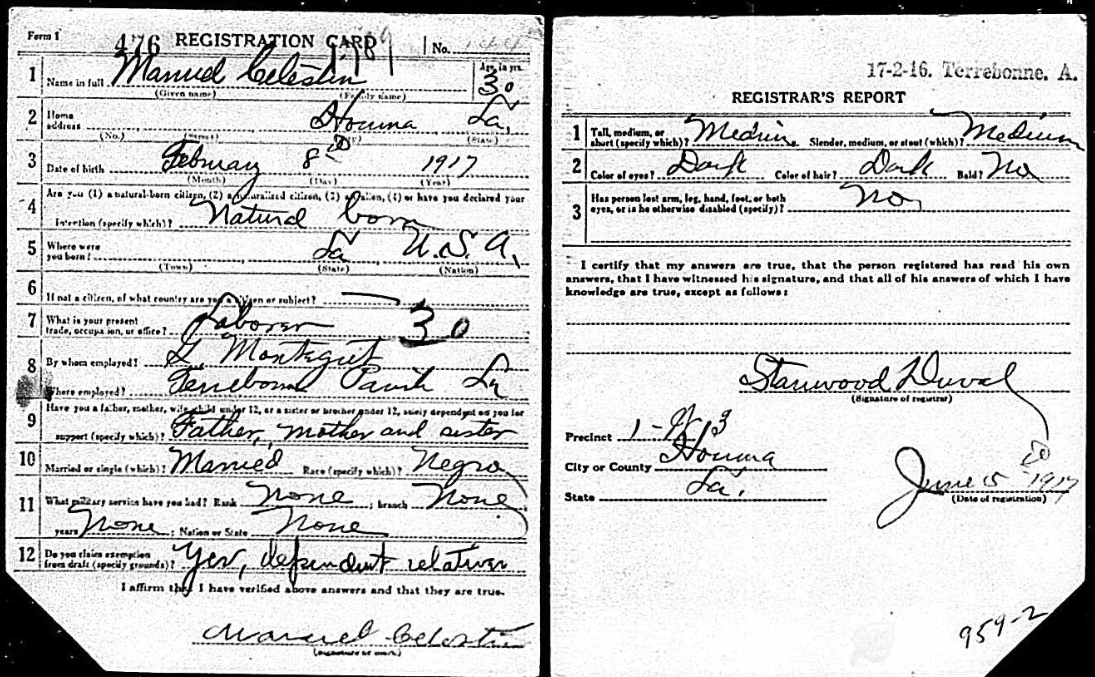 Form 1 476 REGISTRATION CARD 1789 No.
1 Name in full Manuel Celestin Age, in yrs. 30
(Given name) (Family name)
2 Home address Houma La,
(No.) (Street) (State)
3 Date of birth February 8 1917
(Month) (Day) (Year)
4 Are you (1) a natural-born citizen, (2) a naturalized citizen, (3) an alien, (4) or have you declared your
intention (specify which)? Natural born
5 Where were you born? La U.S.A,
(Town) (State) (Nation)
6 If not a citizen, of what country are you a citizen or subject?
7 What is your present trade, occupation, or office? Laborer 30
8 By whom employed?
Where employed? Terrebonne Parish La
9 Have you a father, mother, wife, child under 12, or a sister or brother under 12, solely dependent on you for
support (specify which)? Father, mother and sister
10 Married or single (which)? Married Race (specify which)? Negro
11 What military service have you had? Rank None ; branch None
years None ; Nation or State None
12 Do you claim exemption from draft (specify grounds)? Yes, dependent relatives
I affirm that I have verified above answers and that they are true.
Manuel Celestin
(Signature or mark)
17-2-16. Terrebonne. A.
REGISTRAR'S REPORT
1 Tall, medium, or short (specify which)? Medium Slender, medium, or stout (which)? Medium
2 Color of eyes? Dark Color of hair? Dark Bald? No
3 Has person lost arm, leg, hand, foot, or both eyes, or is he otherwise disabled (specify)? No
I certify that my answers are true, that the person registered has read his own
answers, that I have witnessed his signature, and that all of his answers of which I have
knowledge are true, except as follows:
Stanwood Duval
(Signature of registrar)
Precinct 1- 3
City or County Houma
State La.
June 5 1917
(Date of registration)
959-2